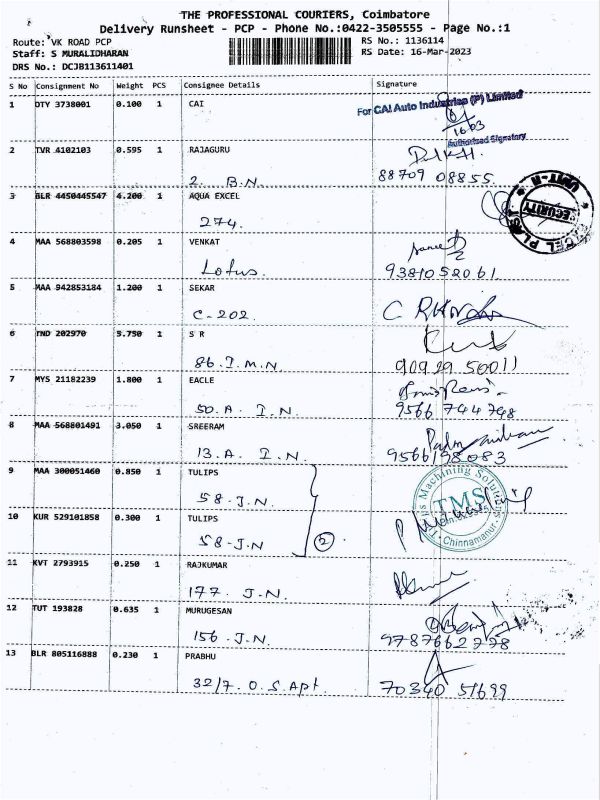 THE PROFESSIONAL COURIERS, Coimbatore
Delivery Runsheet - PCP - Phone No.:0422-3505555 - Page No.:1
Route: VK ROAD PCP
Staff: S MURALIDHARAN
DRS No.: DCJB113611401
RS No.: 1136114
RS Date: 16-Mar-2023
S No Consignment No Weight PCS Consignee Details Signature
1 OTY 3738001 0.100 1 CAI
For CAI Auto Industries (P) Limited
16/03
Authorised Signatory
2 TVR 4102103 0.595 1 RAJAGURU
2. B.N. 88709 08855
3 BLR 4450445547 4.200 1 AQUA EXCEL
274.
UNIT-II
SECURITY
4 MAA 568803598 0.205 1 VENKAT
Lotus. 9381052061
5 MAA 942853184 1.200 1 SEKAR
C-202.
6 TND 202970 5.750 1 S R
86.I.M.N. 90929 50011
7 MYS 21182239 1.800 1 EACLE
50.A. I.N. 9566 744748
8 MAA 568801491 3.050 1 SREERAM
13.A. I.N. 9566198083
9 MAA 300051460 0.850 1 TULIPS
58.J.N.
Machining Solutions
TMS
Chinnamanur
10 KUR 529101858 0.300 1 TULIPS
58-J.N 2
11 KVT 2793915 0.250 1 RAJKUMAR
177. J.N.
12 TUT 193828 0.635 1 MURUGESAN
156.J.N. 9787662778
13 BLR 805116888 0.230 1 PRABHU
32/7. O.S.Apt. 70340 51699